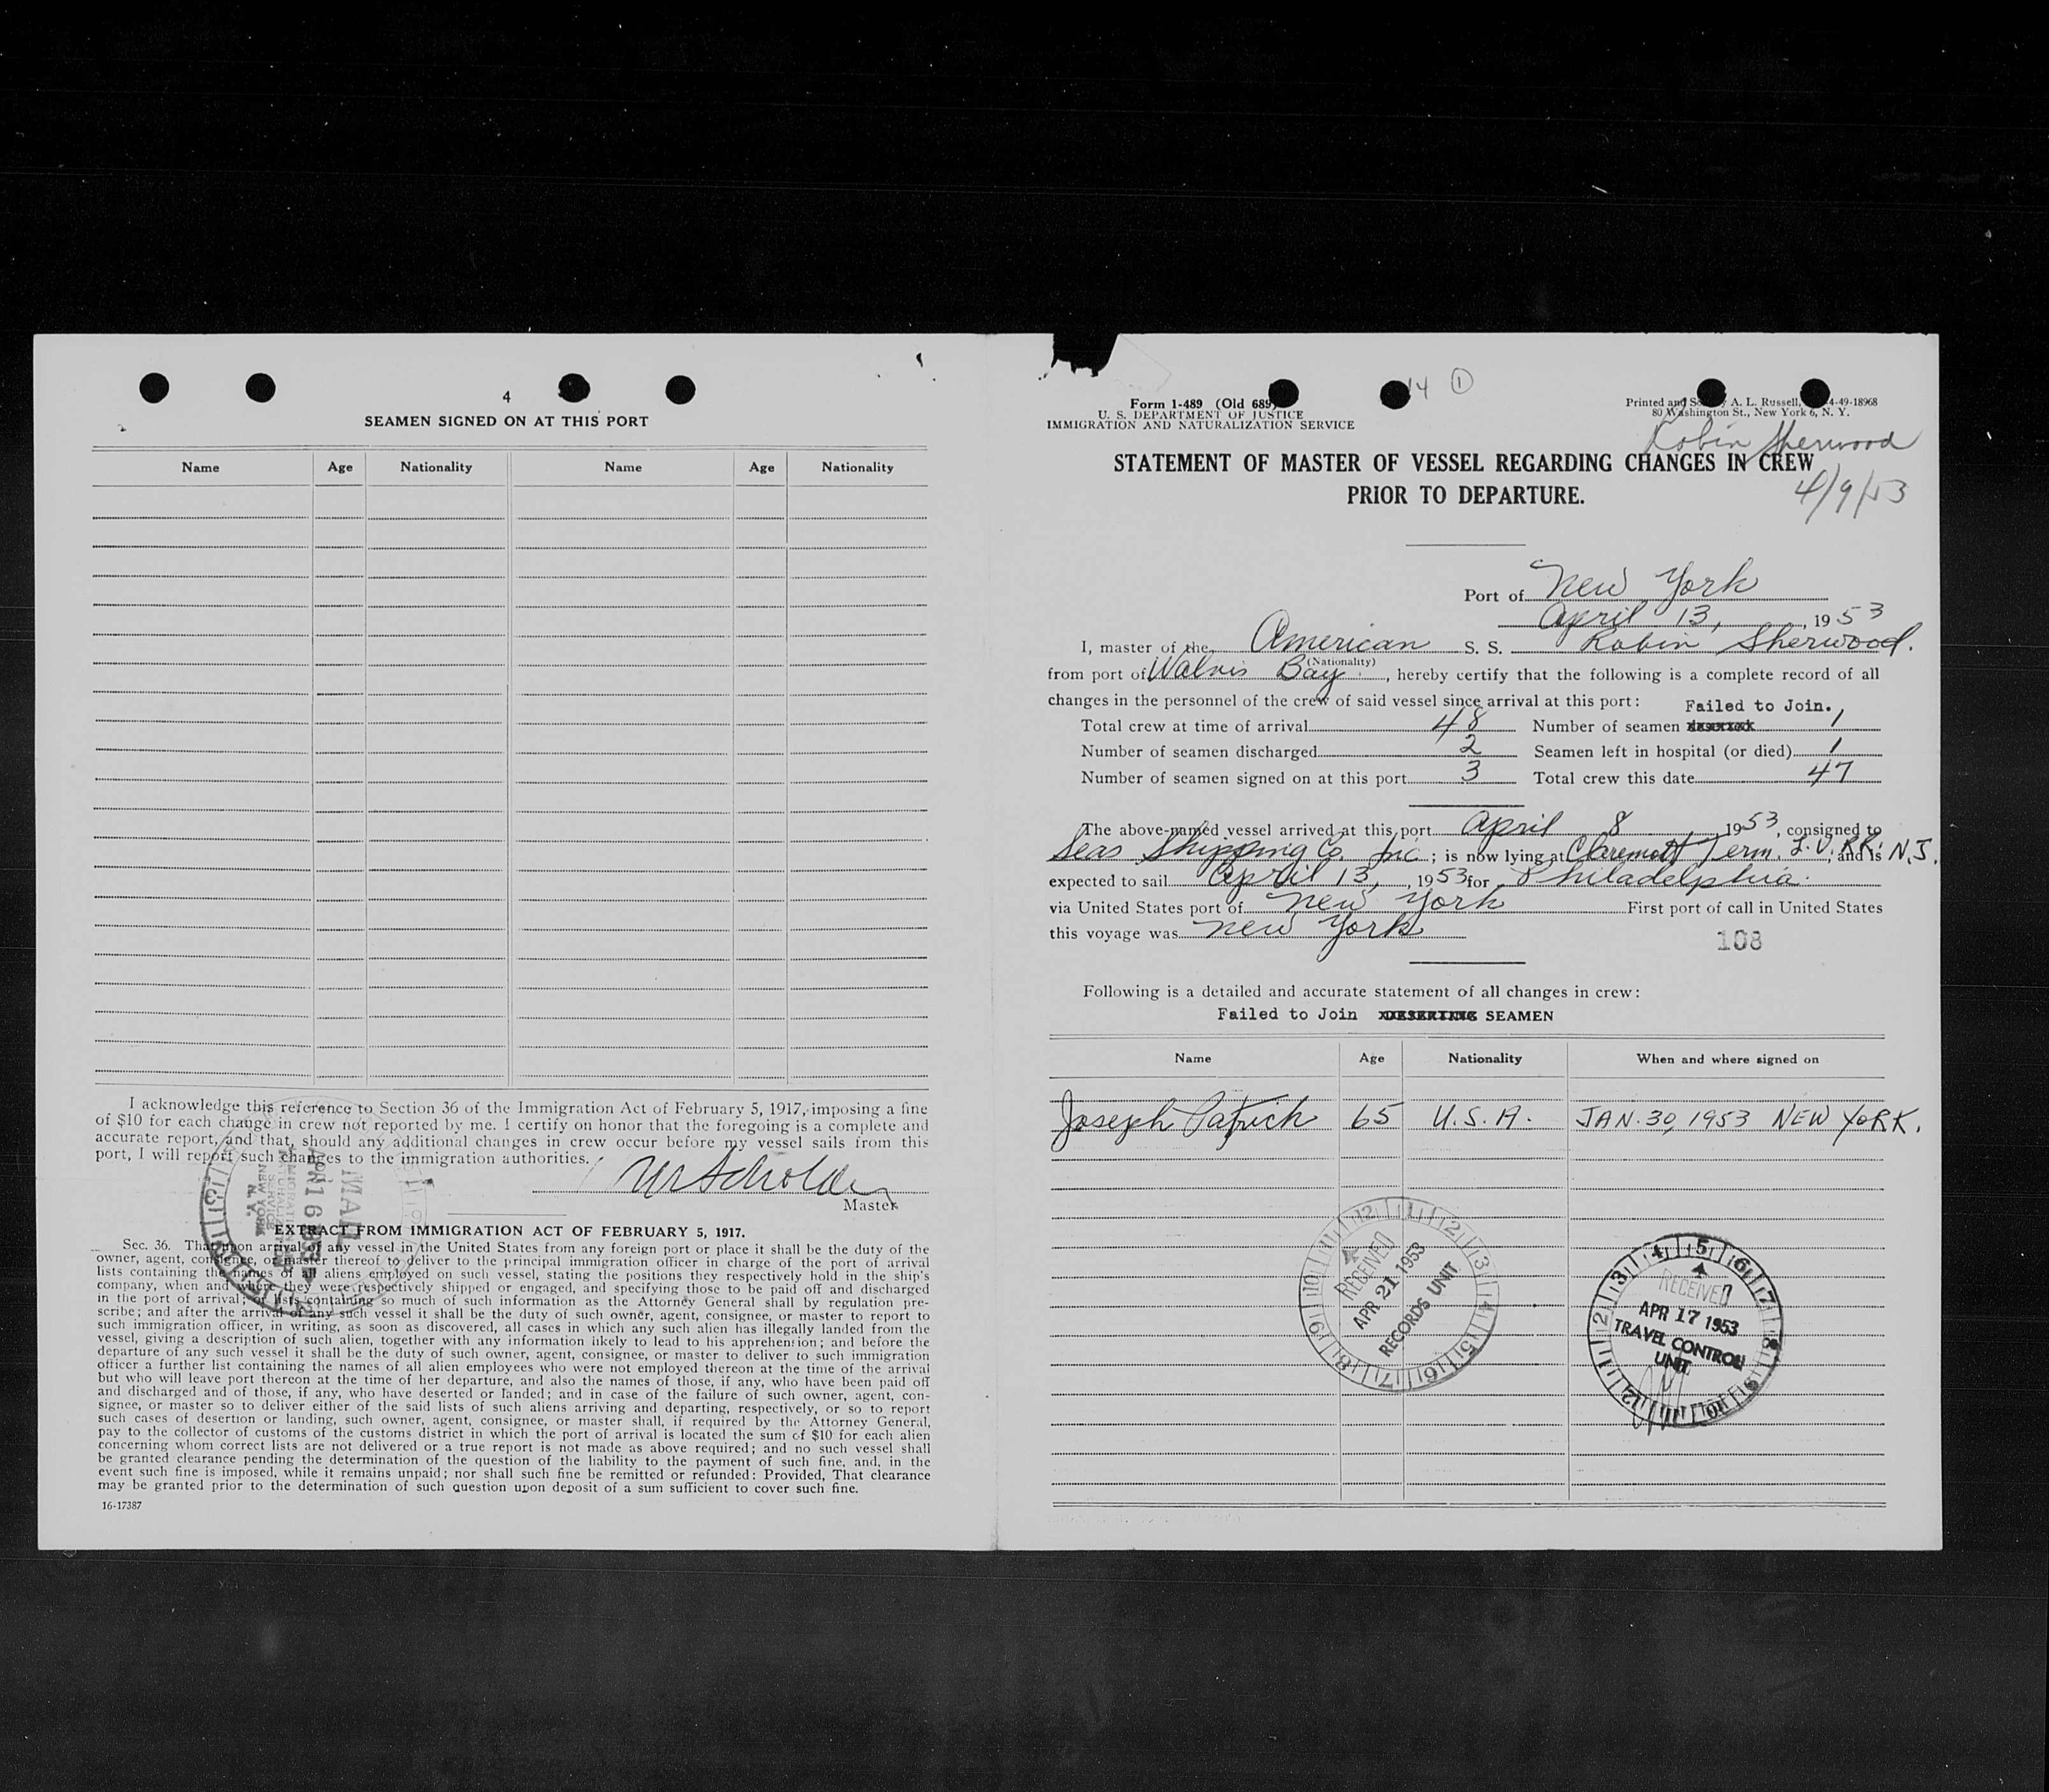 4
SEAMEN SIGNED ON AT THIS PORT
Name Age Nationality Name Age Nationality
I acknowledge this reference to Section 36 of the Immigration Act of February 5, 1917, imposing a fine
of $10 for each change in crew not reported by me. I certify on honor that the foregoing is a complete and
accurate report, and that, should any additional changes in crew occur before my vessel sails from this
port, I will report such changes to the immigration authorities.
Master
MAIL
APR 16 1953
IMMIGRATION
NATURALIZATION
SERVICE
NEW YORK
N. Y.
EXTRACT FROM IMMIGRATION ACT OF FEBRUARY 5, 1917.
Sec. 36. That upon arrival of any vessel in the United States from any foreign port or place it shall be the duty of the
owner, agent, consignee, or master thereof to deliver to the principal immigration officer in charge of the port of arrival
lists containing the names of all aliens employed on such vessel, stating the positions they respectively hold in the ship's
company, when and where they were respectively shipped or engaged, and specifying those to be paid off and discharged
in the port of arrival; or lists containing so much of such information as the Attorney General shall by regulation pre-
scribe; and after the arrival of any such vessel it shall be the duty of such owner, agent, consignee, or master to report to
such immigration officer, in writing, as soon as discovered, all cases in which any such alien has illegally landed from the
vessel, giving a description of such alien, together with any information likely to lead to his apprehension; and before the
departure of any such vessel it shall be the duty of such owner, agent, consignee, or master to deliver to such immigration
officer a further list containing the names of all alien employees who were not employed thereon at the time of the arrival
but who will leave port thereon at the time of her departure, and also the names of those, if any, who have been paid off
and discharged and of those, if any, who have deserted or landed; and in case of the failure of such owner, agent, con-
signee, or master so to deliver either of the said lists of such aliens arriving and departing, respectively, or so to report
such cases of desertion or landing, such owner, agent, consignee, or master shall, if required by the Attorney General,
pay to the collector of customs of the customs district in which the port of arrival is located the sum of $10 for each alien
concerning whom correct lists are not delivered or a true report is not made as above required; and no such vessel shall
be granted clearance pending the determination of the question of the liability to the payment of such fine, and, in the
event such fine is imposed, while it remains unpaid; nor shall such fine be remitted or refunded: Provided, That clearance
may be granted prior to the determination of such question upon deposit of a sum sufficient to cover such fine.
16-17387
14 1
Form 1-489 (Old 689)
U. S. DEPARTMENT OF JUSTICE
IMMIGRATION AND NATURALIZATION SERVICE
Printed and Sold by A. L. Russell, 4-49-18968
80 Washington St., New York 6, N. Y.
Robin Sherwood
STATEMENT OF MASTER OF VESSEL REGARDING CHANGES IN CREW
PRIOR TO DEPARTURE.
4/9/53
Port of New York
April 13, , 1953
I, master of the American S. S. Robin Sherwood.
(Nationality)
from port of Walvis Bay , hereby certify that the following is a complete record of all
changes in the personnel of the crew of said vessel since arrival at this port: Failed to Join.
Total crew at time of arrival 48 Number of seamen 1
Number of seamen discharged 2 Seamen left in hospital (or died) 1
Number of seamen signed on at this port 3 Total crew this date 47
The above-named vessel arrived at this port April 8 1953, consigned to
Seas Shipping Co. Inc. ; is now lying at Claremont Term. L.V.RR. N.J. ; and is
expected to sail April 13, , 1953 for Philadelphia.
via United States port of New York First port of call in United States
this voyage was New York
108
Following is a detailed and accurate statement of all changes in crew:
Failed to Join DESERTING SEAMEN
Name Age Nationality When and where signed on
Joseph Patrick 65 U.S.A. JAN. 30, 1953 NEW YORK.
RECEIVED
APR 21 1953
RECORDS UNIT
RECEIVED
APR 17 1953
TRAVEL CONTROL
UNIT